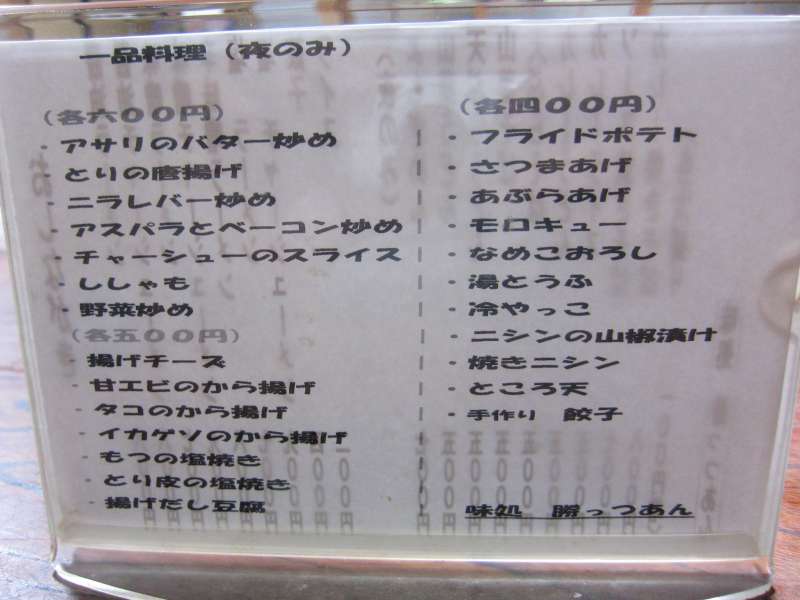 一品料理（夜のみ）
（各六００円）
・アサリのバター炒め
・とりの唐揚げ
・ニラレバー炒め
・アスパラとベーコン炒め
・チャーシューのスライス
・ししゃも
・野菜炒め
（各五００円）
・揚げチーズ
・甘エビのから揚げ
・タコのから揚げ
・イカゲソのから揚げ
・もつの塩焼き
・とり皮の塩焼き
・揚げだし豆腐
（各四００円）
・フライドポテト
・さつまあげ
・あぶらあげ
・モロキュー
・なめこおろし
・湯とうふ
・冷やっこ
・ニシンの山椒漬け
・焼きニシン
・ところ天
・手作り　餃子
味処　勝っつあん